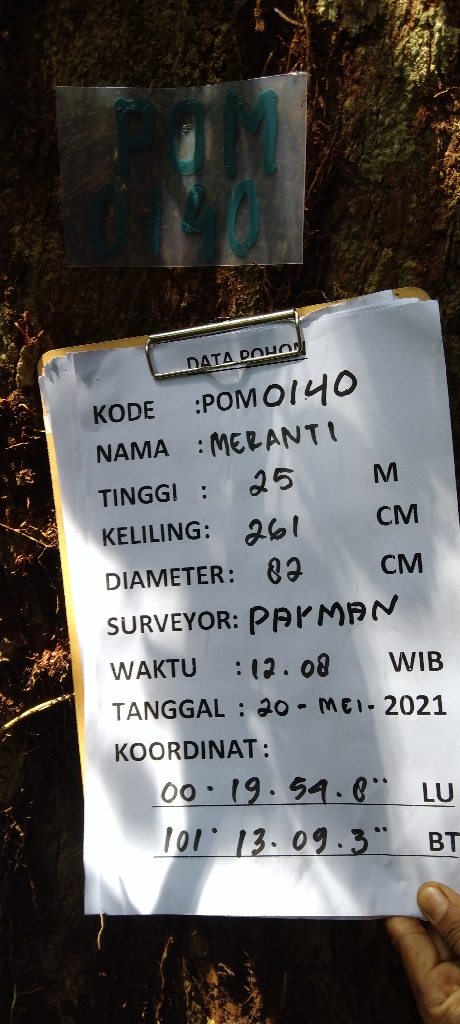 POM
0140
DATA POHON
KODE :POM0140
NAMA : MERANTI
TINGGI : 25 M
KELILING: 261 CM
DIAMETER: 82 CM
SURVEYOR: PAYMAN
WAKTU : 12.08 WIB
TANGGAL : 20 - MEI - 2021
KOORDINAT:
00° 19. 54. 8" LU
101° 13. 09. 3" BT